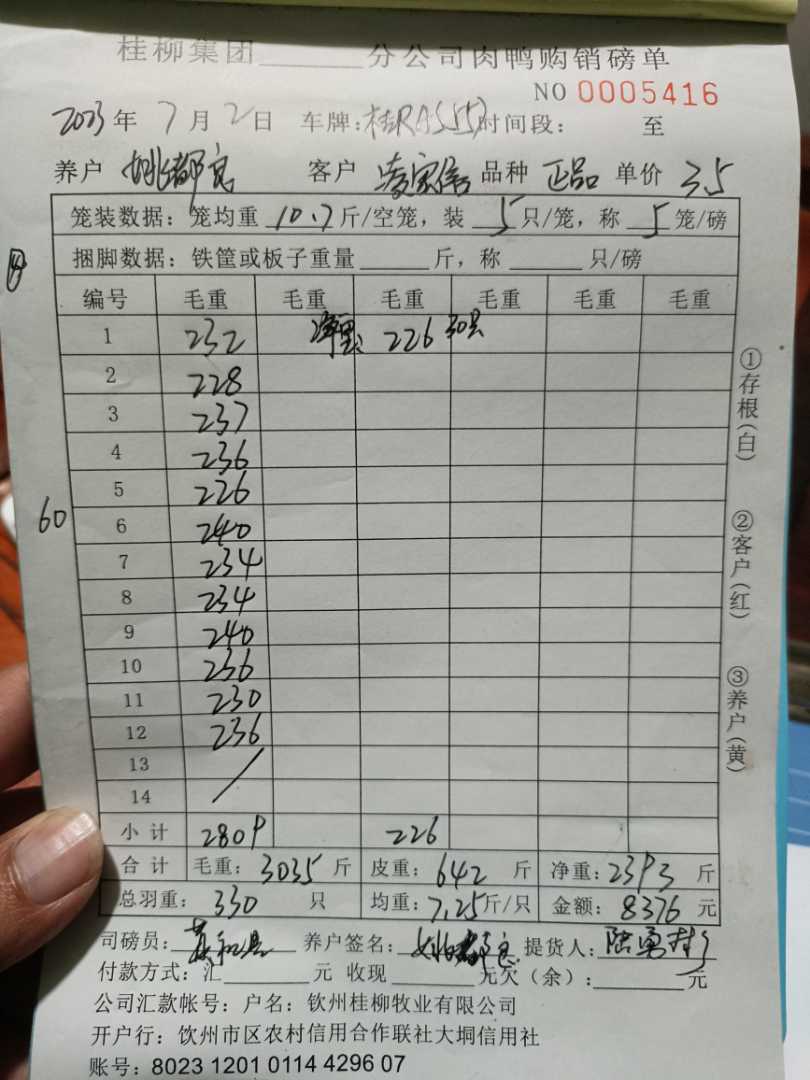 桂柳集团______分公司肉鸭购销磅单
NO 0005416
2023年7月2日 车牌: 时间段: 至
养户 姚都良 客户 品种 正品 单价 3.5
笼装数据：笼均重 10.7 斤/空笼，装 5 只/笼，称 5 笼/磅
捆脚数据：铁筐或板子重量______斤，称______只/磅
编号 毛重 毛重 毛重 毛重 毛重 毛重
1 232 净重: 226 30只
2 228
3 237
4 236
5 226
60
6 240
7 234
8 234
9 240
10 236
11 230
12 236
13
14
小计 2809 226
合计 毛重: 3035 斤 皮重: 642 斤 净重: 2393 斤
总羽重: 330 只 均重: 7.25 斤/只 金额: 8376 元
司磅员: 养户签名: 姚都良 提货人:
付款方式:汇______元 收现______元欠(余):______元
公司汇款帐号: 户名: 钦州桂柳牧业有限公司
开户行: 钦州市区农村信用合作联社大垌信用社
账号: 8023 1201 0114 4296 07
①存根(白)
②客户(红)
③养户(黄)